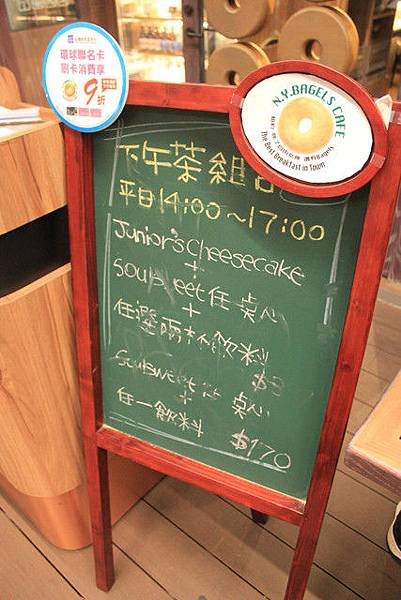 環球聯名卡
刷卡消費享
9折
N.Y.BAGELS CAFE
The Best Breakfast in Town
下午茶組合
平日14:00~17:00
Junior's Cheesecake
+
Soulsweet任 桌心
+
任選兩杯飲料
Soulsweet 桌心
+
任一飲料 $170